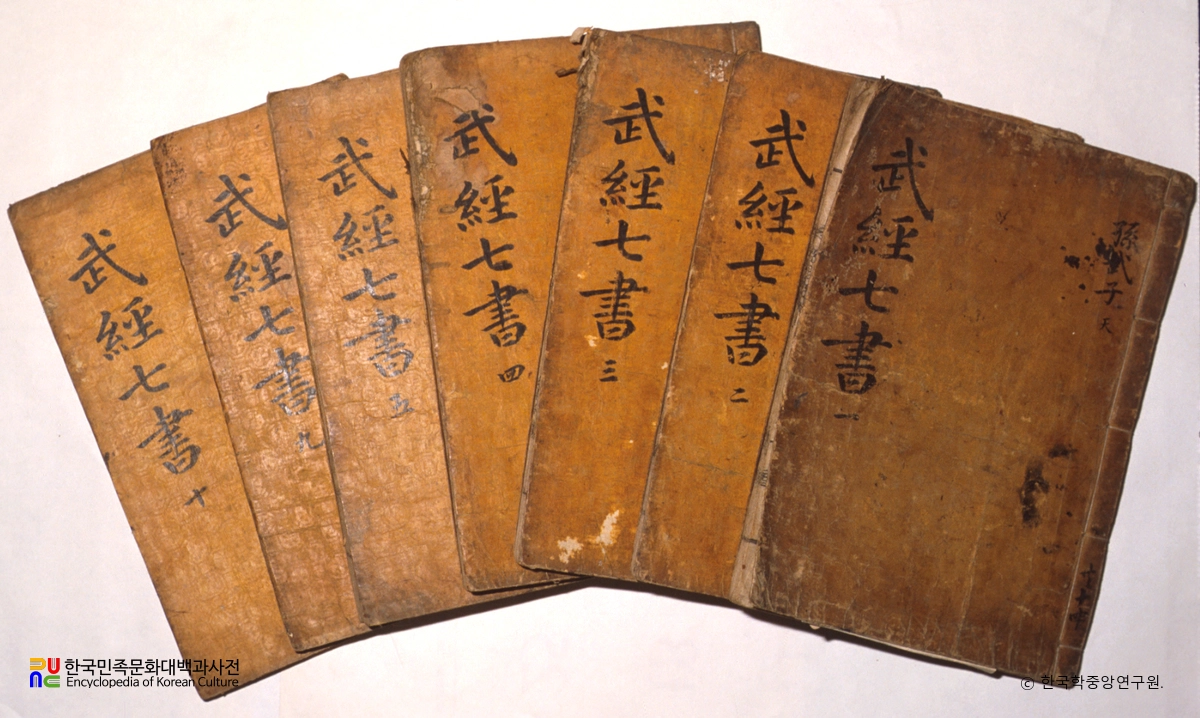 武經七書 十
武經七書 九
武經七書 五
武經七書 四
武經七書 三
武經七書 二
武經七書 一
孫武子 天
한국민족문화대백과사전
Encyclopedia of Korean Culture
ⓒ 한국학중앙연구원.